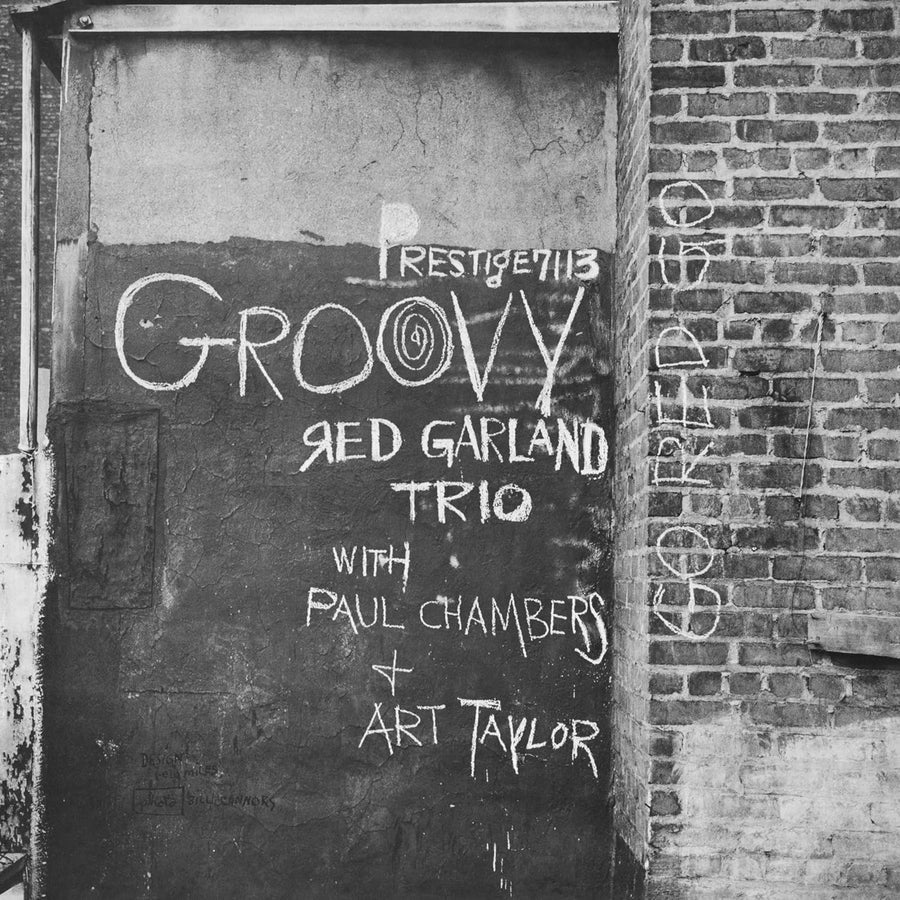 PRESTIGE 7113
GROOVY
RED GARLAND
TRIO
WITH
PAUL CHAMBERS
+
ART TAYLOR
DESIGN
REID MILES
photo BILL CONNORS
GO RED GO